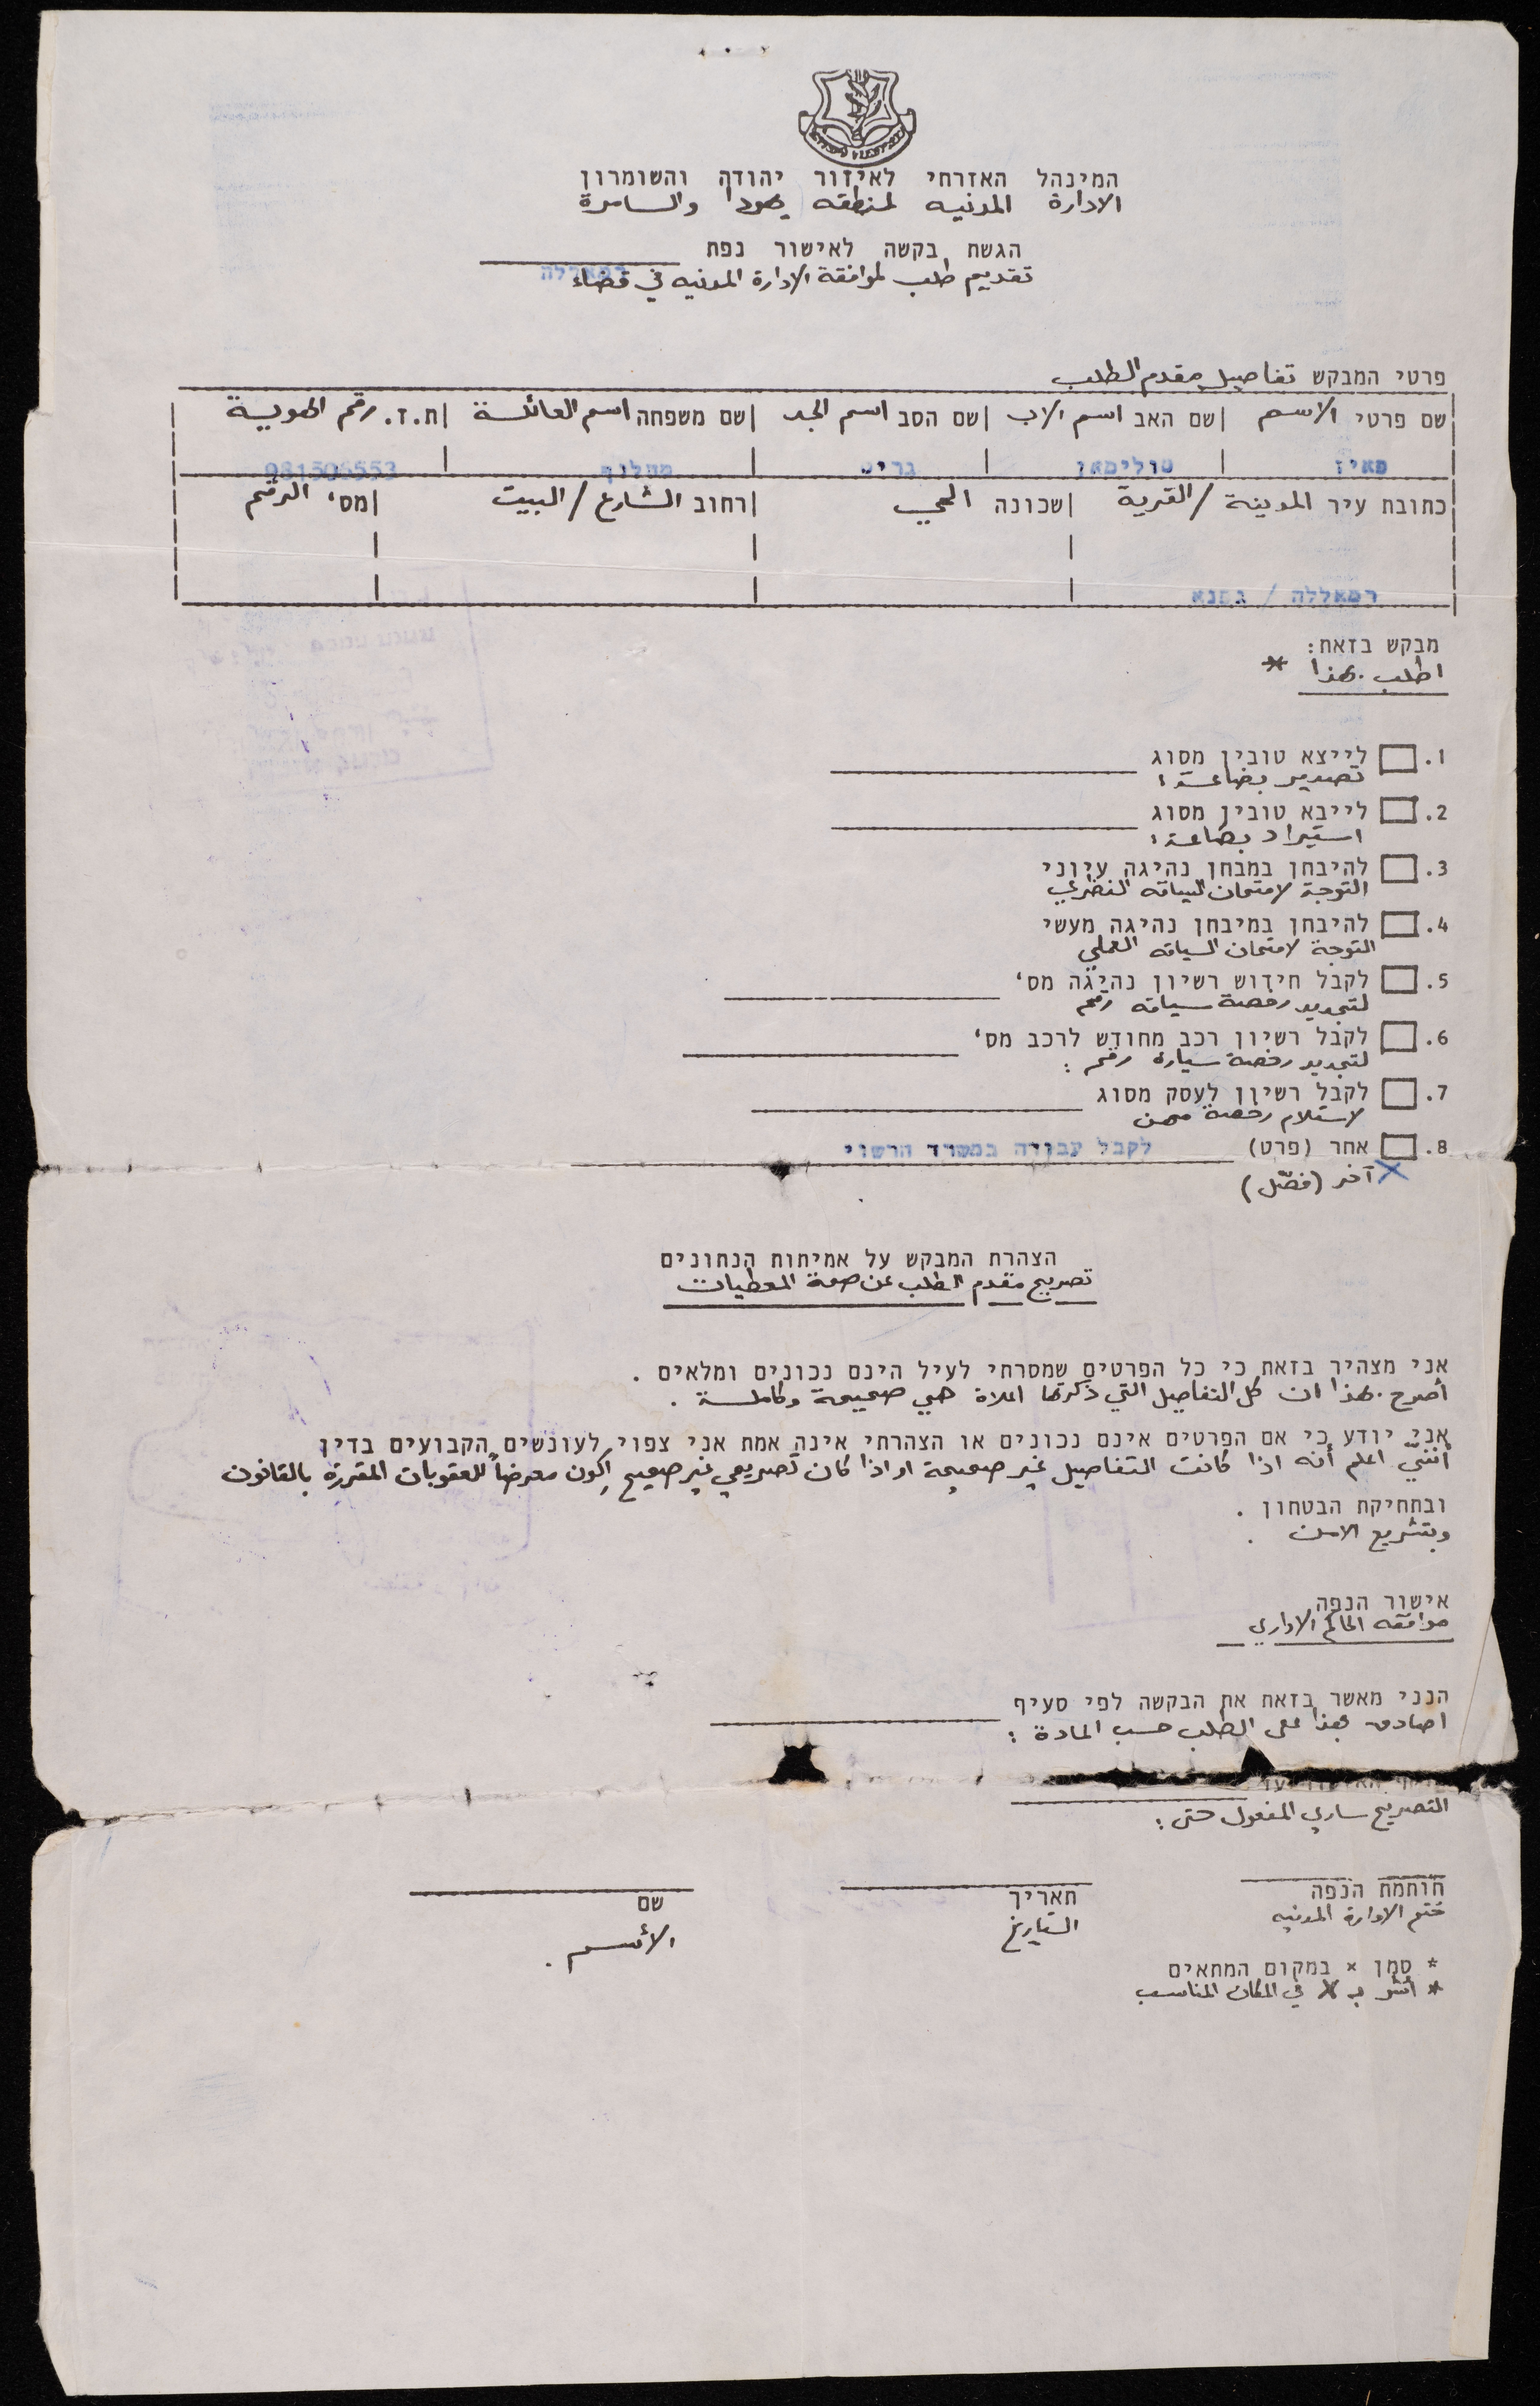 המינהל האזרחי לאיזור יהודה והשומרון
الادارة المدنيه لمنطقه يهودا والسامرة
הגשת בקשה לאישור נפת רמאללה
تقديم طلب لموافقة الادارة المدنيه في قضاء
פרטי המבקש تفاصيل مقدم الطلب
שם פרטי الاسم | שם האב اسم الاب | שם הסב اسم الجد | שם משפחה اسم العائلة | ת.ז. رقم الهوية
פאיז סולימאן גריס מחלוף 981506553
כתובת עיר المدينة / القرية | שכונה الحي | רחוב الشارع / البيت | מס' الرقم
רמאללה / גפנא
מבקש בזאת:
اطلب بهذا *
1. לייצא טובין מסוג
تصدير بضاعة :
2. לייבא טובין מסוג
استيراد بضاعة :
3. להיבחן במבחן נהיגה עיוני
التوجة لامتحان السياقه النضري
4. להיבחן במיבחן נהיגה מעשי
التوجة لامتحان السياقه العملي
5. לקבל חידוש רשיון נהיגה מס'
لتجديد رخصة سياقه رقم
6. לקבל רשיון רכב מחודש לרכב מס'
لتجديد رخصة سيارة رقم :
7. לקבל רשיון לעסק מסוג
لاستلام رخصة مهن
8. אחר (פרט) לקבל עבודה במשרד הרשוי
X آخر (فصّل)
הצהרת המבקש על אמיתות הנתונים
تصريح مقدم الطلب عن صحة المعطيات
אני מצהיר בזאת כי כל הפרטים שמסרתי לעיל הינם נכונים ומלאים .
أصرح بهذا ان كل التفاصيل التي ذكرتها اعلاة هي صحيحة وكاملة .
אני יודע כי אם הפרטים אינם נכונים או הצהרתי אינה אמת אני צפוי לעונשים הקבועים בדין
أنني اعلم أنه اذا كانت التفاصيل غير صحيحة او اذا كان تصريحي غير صحيح اكون معرضاً للعقوبات المقررة بالقانون
ובתחיקת הבטחון .
وبتشريع الامن .
אישור הנפה
موافقه الحاكم الاداري
הנני מאשר בזאת את הבקשה לפי סעיף
اصادق بهذا على الطلب حسب المادة :
التصريح ساري المفعول حتى :
חותמת הנפה תאריך שם
ختم الادارة المدنيه التاريخ الأسم .
* סמן × במקום המתאים
* أشر بـ X في المكان المناسب